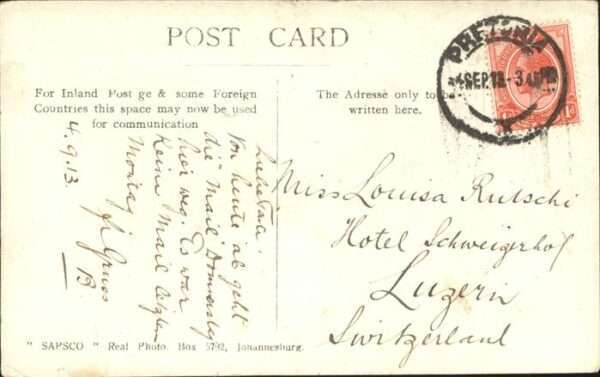 POST CARD
For Inland Post ge & some Foreign
Countries this space may now be used
for communication
The Adresse only to be
written here.
PRETORIA
4 SEP 13 - 3
Von heute ab geht
die "Mail" Donnerstag
hier weg. Es war
keine Mail letzten
Montag
Gruss
B.
4.9.13.
Miss Louisa Rutschi
Hotel Schweizerhof
Luzern
Switzerland
" SAPSCO " Real Photo. Box 5792, Johannesburg.